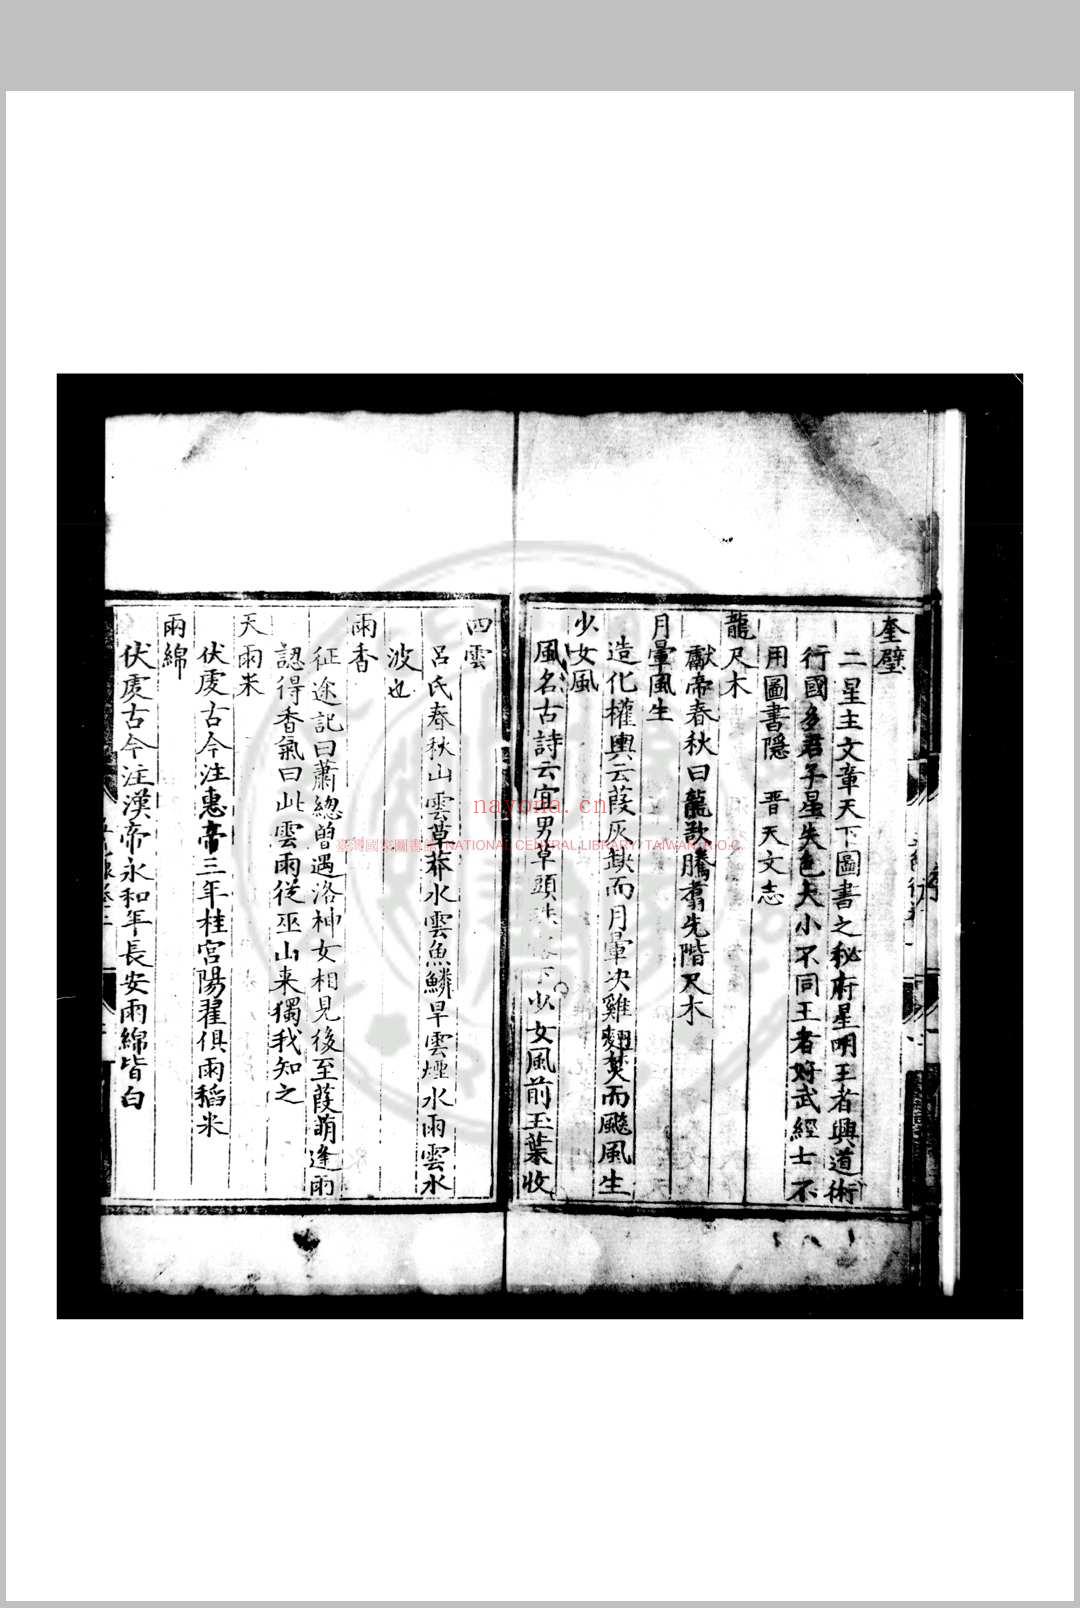 奎壁
二星主文章天下圖書之秘府星明王者興道術
行國多君子星失色大小不同王者好武經士不
用圖書隱 晋天文志
龍尺木
獻帝春秋曰龍欲騰翥先階尺木
月暈風生
造化權輿云葭灰缺而月暈决雞翅焚而颷風生
少女風
風名古詩云宜男草頭 下少女風前玉葉收
四雲
呂氏春秋山雲草莽水雲魚鱗旱雲煙水雨雲水
波也
雨香
征途記曰蕭總曽遇洛神女相見後至葭萌逢雨
認得香氣曰此雲雨從巫山来獨我知之
天雨米
伏虔古今注惠帝三年桂宫陽翟俱雨稻米
雨綿
伏虔古今注漢帝永和年長安雨綿皆白
nayona.cn
臺灣國家圖書館 NATIONAL CENTRAL LIBRARY, TAIWAN, R.O.C.